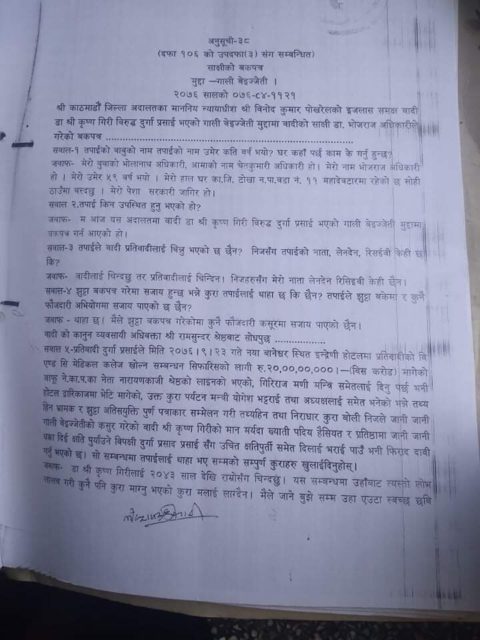 अनुसूची-३८
(दफा १०६ को उपदफा(३) संग सम्बन्धित)
साक्षीको बकपत्र
मुद्दा –गाली बेइज्जेती ।
२०७६ सालको ०७६-C४-११२१
श्री काठमाडौं जिल्ला अदालतका माननिय न्यायाधीश श्री विनोद कुमार पोखरेलको इजलास समक्ष वादी
डा श्री कृष्ण गिरी विरुद्ध दुर्गा प्रसाई भएको गाली बेइज्जेती मुद्दामा वादीको साक्षी डा. भोजराज अधिकारीले
गरेको बकपत्र
सवाल-१ तपाईको बाबुको नाम तपाईको नाम उमेर कति वर्ष भयो? घर कहाँ पर्छ काम के गर्नु हुन्छ?
जवाफ- मेरो बुवाको भोलानाथ अधिकारी, आमाको नाम चेतकुमारी अधिकारी हो। मेरो नाम भोजराज अधिकारी
हो । मेरो उमेर ५९ वर्ष भयो । मेरो हाल घर का.जि. टोखा न.पा.वडा नं. ११ महादेवटारमा रहेको छ सोही
ठाउँमा बस्दछु । मेरो पेशा सरकारी जागिर हो।
सवाल २.तपाई किन उपस्थित हुनु भएको हो?
जवाफ- म आज यस अदालतमा वादी डा श्री कृष्ण गिरी विरुद्ध दुर्गा प्रसाई भएको गाली बेइज्जेती मुद्दामा
बकपत्र गर्न आएको हो।
सवाल-३ तपाईले वादी प्रतिवादीलाई चिन्नु भएको छ छैन? निजसँग तपाईको नाता, लेनदेन, रिसईवी केही छ
कि?
जवाफ- वादीलाई चिन्दछु तर प्रतिवादीलाई चिन्दिन। निजहरुसँग मेरो नाता लेनदेन रिसिइवी केही छैन।
सवाल-४ झुठ्ठा बकपत्र गरेमा सजाय हुन्छ भन्ने कुरा तपाईलाई थाहा छ कि छैन? तपाईले झुठ्ठा बकेमा र कुनै
फौजदारी अभियोगमा सजाय पाएको छैन?
जवाफ - थाहा छ। मैले झुठ्ठा बकपत्र गरेकोमा कुनै फौजदारी कसूरमा सजाय पाएको छैन।
वादी को कानुन व्यवसायी अधिवक्ता श्री रामसुन्दर श्रेष्ठबाट सोधपुछ
सवाल ५-प्रतिवादी दुर्गा प्रसाईले मिति २०७६।९।२३ गते नया बानेश्वर स्थित इन्द्रेणी होटलमा प्रतिवादीको बि
एण्ड सि मेडिकल कलेज खोल्न सम्बन्धन सिफारिसको लागी रु.२०,००,००,०००।-(बिस करोड) मागेको
बाफू ने.का.प.का नेता नारायणकाजी श्रेष्ठको लाइनको भएको, गिरिराज मणी मन्त्रि समेतलाई दिनु पर्छ भनी
होटल द्वारिकाजमा भेटि मागेको, उक्त कुरा पर्यटन मन्त्री योगेश भट्टराई तथा अध्यक्षलाई समेत भनेको भन्ने तथ्य
हिन भ्रामक र झुठ्ठा अतिसयुक्ति पुर्ण पत्रकार सम्मेलन गरी तथ्यहिन तथा निराधार कुरा बोली निजले जानी जानी
गाली बेइज्जेतीको कसुर गरेको वादी श्री कृष्ण गिरीको मान मर्यदा ख्याती पदिय हैसियत र प्रतिष्ठामा जानी जानी
धक्का दिई क्षति पुर्याउने बिपक्षी दुर्गा प्रसाद प्रसाई सँग उचित क्षतिपुर्ती समेत दिलाई भराई पाउँ भनी फिराद दावी
गर्नु भएको छ। सो सम्बन्धमा तपाईलाई थाहा भए सम्मको सम्पुर्ण कुराहरु खुलाईदिनुहोस्।
जवाफ- डा श्री कृष्ण गिरीलाई २०४३ साल देखि राम्रोसँग चिन्दछु। यस सम्बन्धमा उहाँबाट त्यस्तो लोभ
लालच गरी कुनै पनि कुरा माग्नु भएको कुरा मलाई लाग्दैन। मैले जाने बुझे सम्म उहा एउटा स्वच्छ छवि